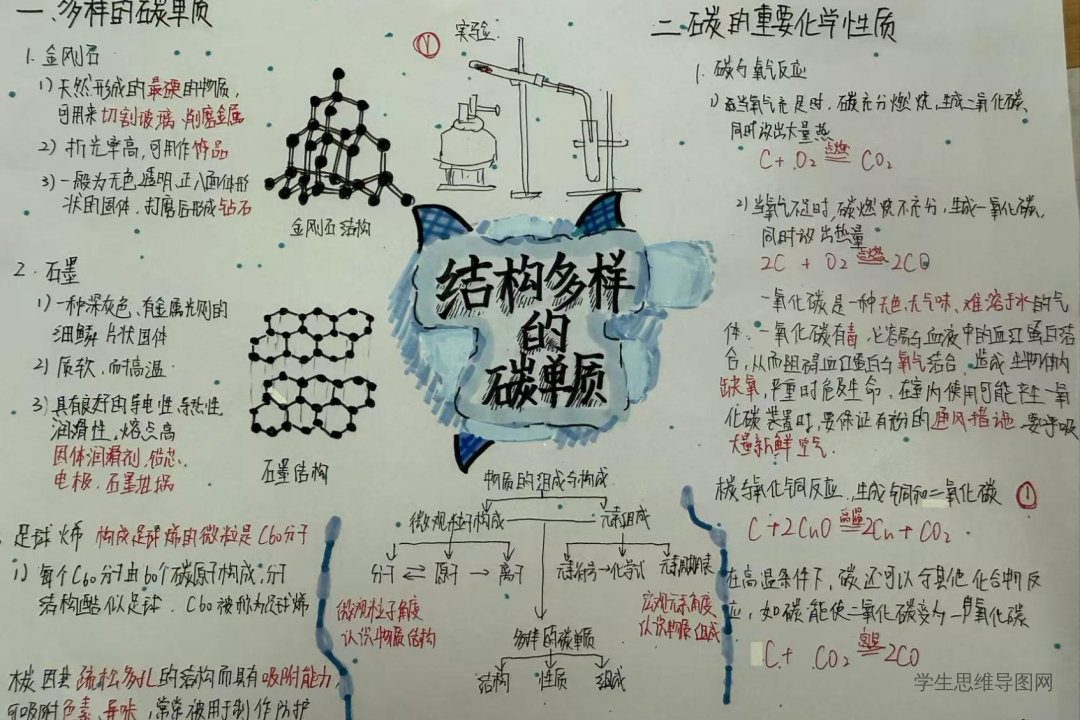 一、多样的碳单质
1. 金刚石
1) 天然形成的最硬的物质,
可用来切割玻璃、削磨金属
2) 折光率高,可用作饰品
3) 一般为无色透明,正八面体形
状的固体,打磨后形成钻石
金刚石结构
2. 石墨
1) 一种深灰色、有金属光泽的
细鳞片状固体
2) 质软,而高温
3) 具有良好的导电性、导热性,
润滑性、熔点高
固体润滑剂、铅芯、
电极、石墨坩埚
石墨结构
足球烯 构成足球烯的微粒是C60分子
1) 每个C60分子由60个碳原子构成,分子
结构酷似足球,C60被称为足球烯
炭因其疏松多孔的结构而具有吸附能力,
可吸附色素、异味,常常被用于制作防护
① 实验:
结构多样
的
碳单质
物质的组成与构成
微观粒子构成
元素组成
分子 ⇌ 原子 → 离子
元素符号→化学式
元素周期表
微观粒子角度
认识物质结构
宏观元素角度
认识物质组成
多样的碳单质
结构 性质 组成
二、碳的重要化学性质
1. 碳与氧气反应
1) 当氧气充足时,碳充分燃烧,生成二氧化碳,
同时放出大量热
C + O2 点燃 CO2
2) 当氧气不足时,碳燃烧不充分,生成一氧化碳,
同时放出热量
2C + O2 点燃 2CO
一氧化碳是一种无色、无气味、难溶于水的气
体。一氧化碳有毒,它容易与血液中的血红蛋白结
合,从而阻碍血红蛋白与氧气结合,造成生物体内
缺氧,严重时危及生命,在室内使用可能产生一氧
化碳装置时,要保证有充分的通风措施,要呼吸
大量新鲜空气.
碳与氧化铜反应,生成铜和二氧化碳 ①
C + 2CuO 高温 2Cu + CO2
在高温条件下,碳还可以与其他化合物反
应,如碳能使二氧化碳变为一氧化碳
C + CO2 高温 2CO
学生思维导图网